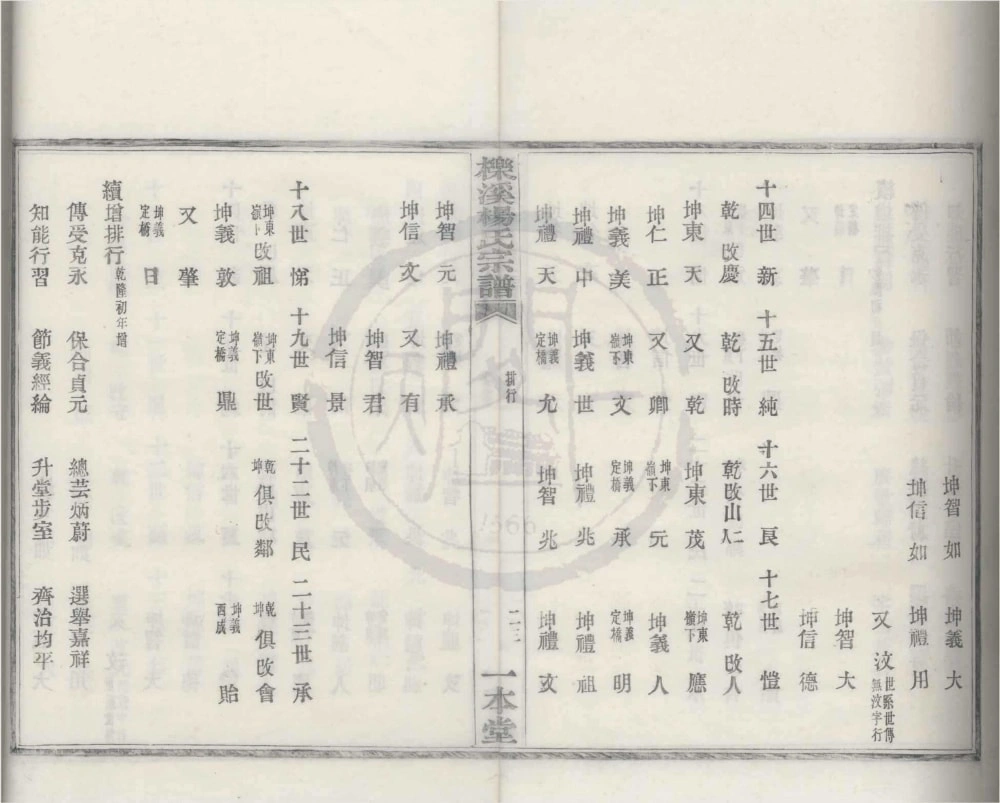 坤智如 坤義大
坤信如 坤禮用
又汶 世系世傳無汶字行
坤智大
坤信德
十四世新 十五世純 十六世良 十七世愷
乾改慶 乾改時 乾改山仁 乾改人
坤東天 又乾 坤東茂 坤東嶺下應
坤仁正 又卿 坤東嶺下元 坤義人
坤義美 坤東嶺下文 坤義定橋承 坤義定橋明
坤禮中 坤義世 坤禮兆 坤禮祖
坤禮天 坤義定橋允 坤智兆 坤禮文
櫟溪楊氏宗譜 排行 二三 一本堂
坤智元 坤禮承
坤信文 又有
坤智君
坤信景
十八世悌 十九世賢 二十二世民 二十三世承
坤東嶺下改祖 坤東嶺下改世 乾坤俱改鄰 乾坤俱改會
坤義敦 坤義定橋鼎 坤義西成貽
又肇
坤義定橋日
續增排行 乾隆初年增
傳受克永 保合貞元 總芸炳蔚 選舉嘉祥
知能行習 節義經綸 升堂步室 齊治均平
1566